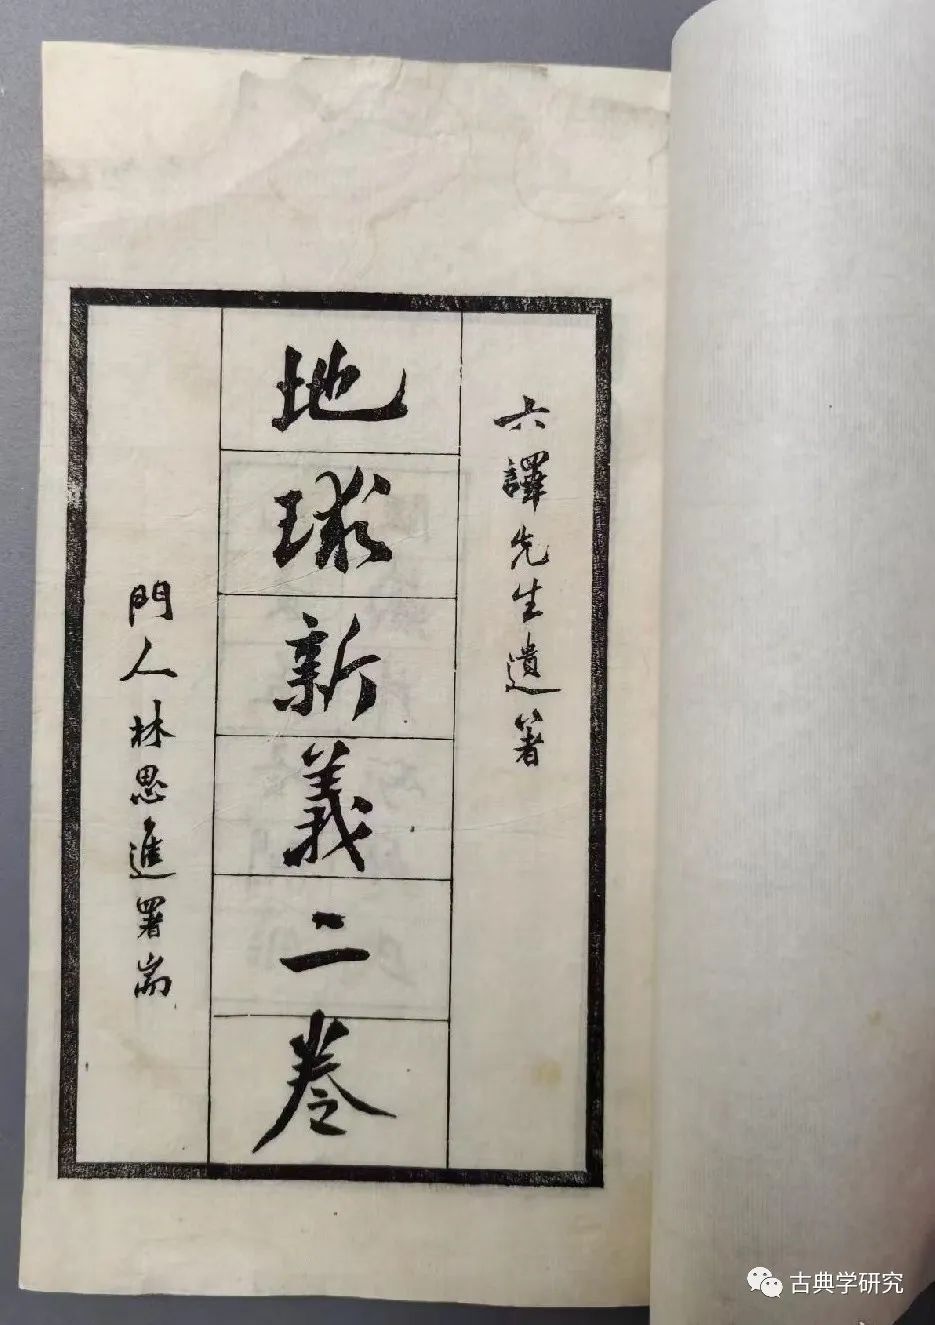 六譯先生遺箸
地球新義二卷
門人林思進署耑
古典学研究